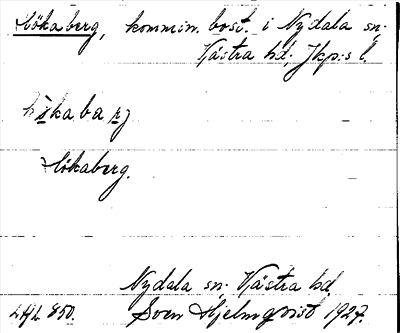 Hökaberg, kommin. bost. i Nydala sn.
Västra hd, Jkp:s l.
hökabarj
Hökaberg.
Nydala sn. Västra hd.
LHL 850. Sven Hjelmqvist 1927.